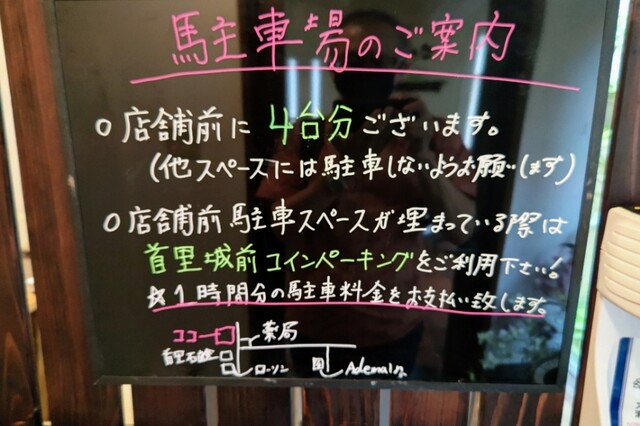 駐車場のご案内
○店舗前に 4台分ございます。
(他スペースには駐車しないようお願いします)
○店舗前駐車スペースが埋まっている際は
首里城前コインパーキングをご利用下さい!
☆1時間分の駐車料金をお支払い致します。
ココ→ 薬局
首里石鹸
ローソン